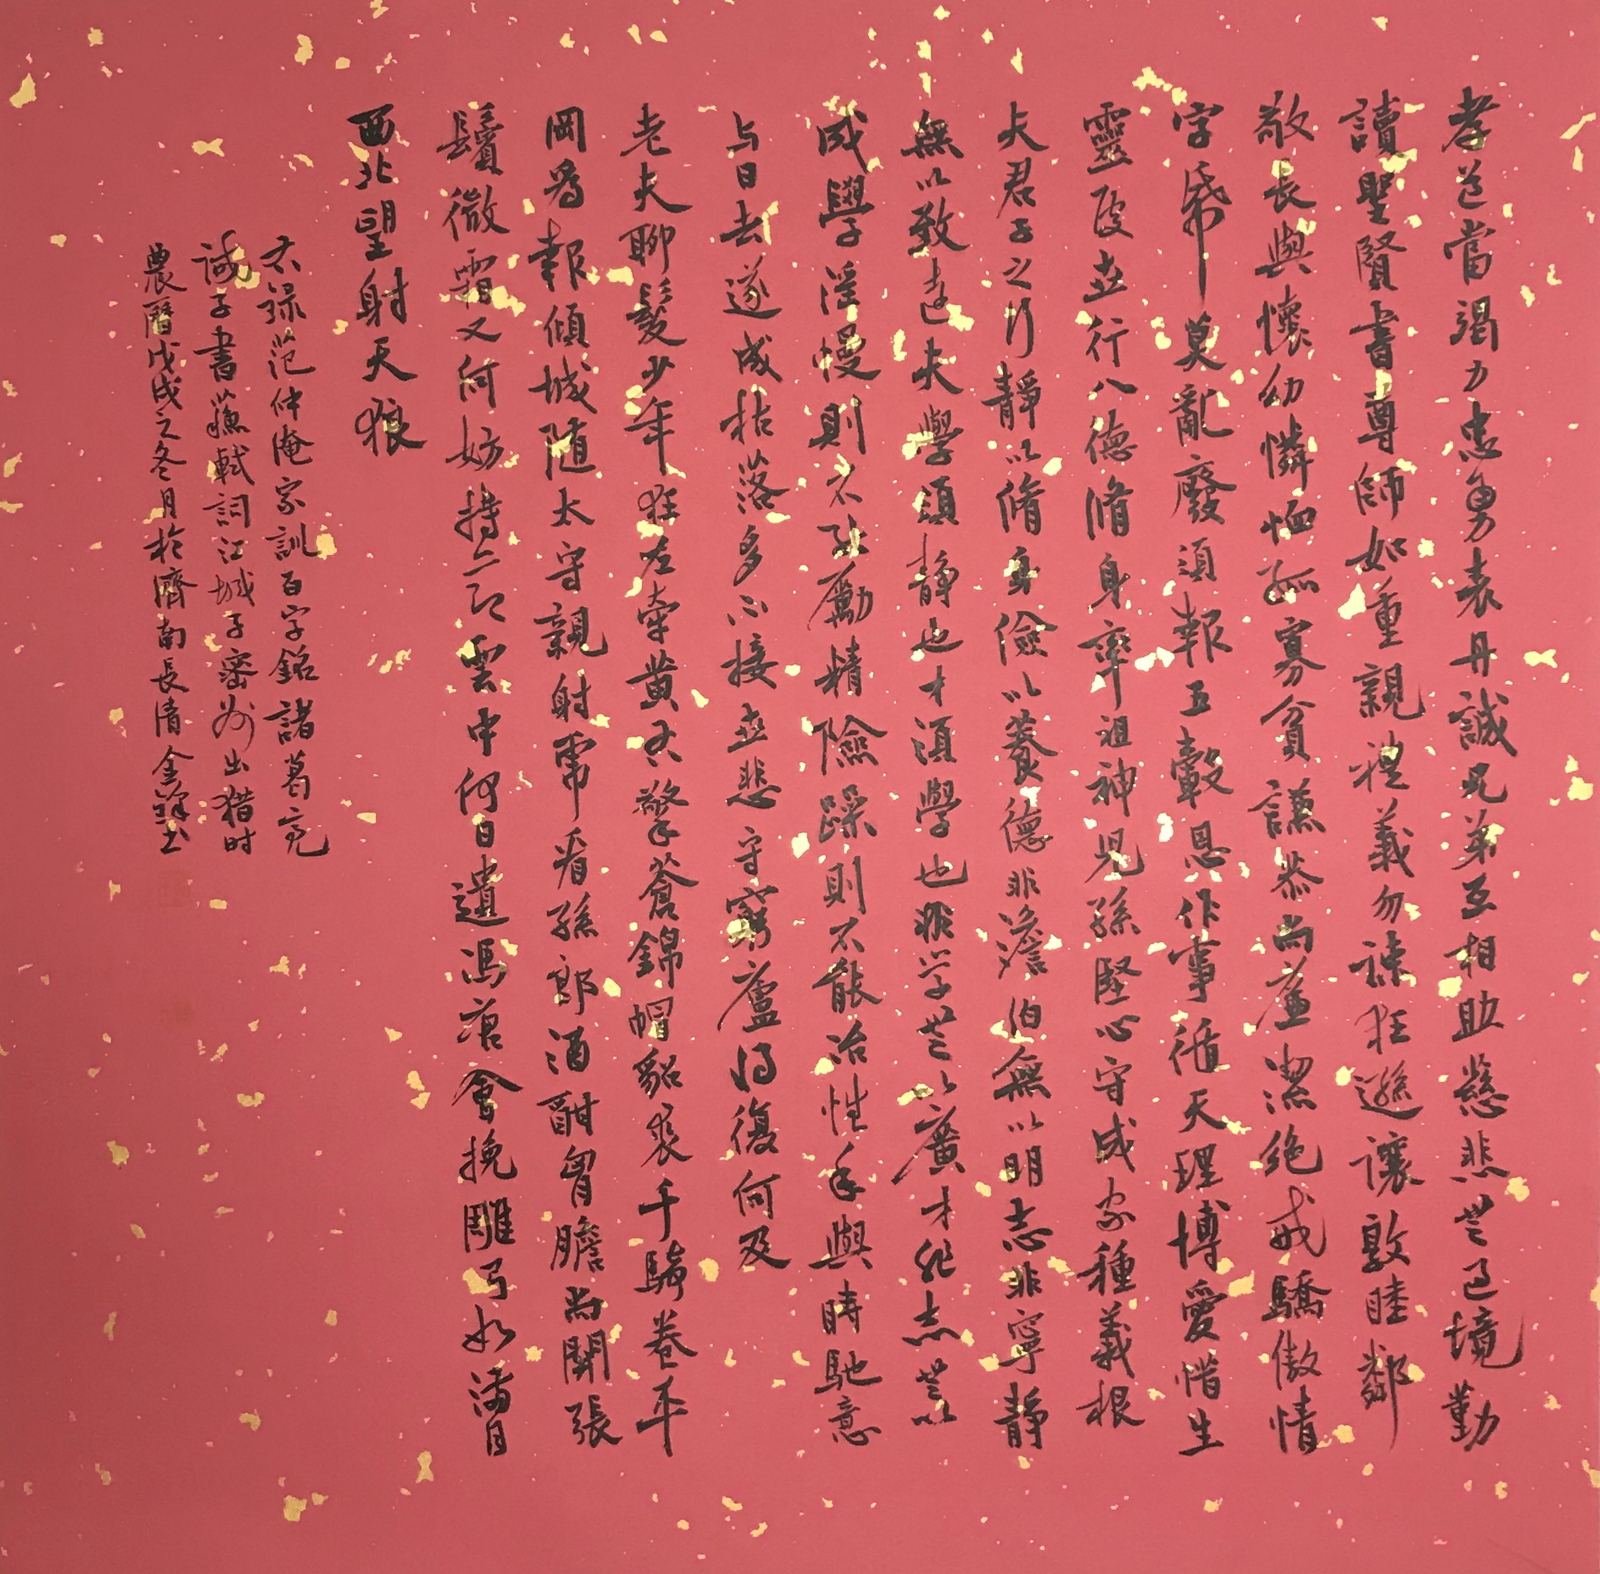 孝道當竭力忠勇表丹誠兄弟互相助慈悲無過境勤
讀聖賢書尊師如重親禮義勿疎狂遜讓敦睦鄰
敬長與懷幼憐恤孤寡貧謙恭尚廉潔絶戒驕傲情
字紙莫亂廢須報五穀恩作事循天理博愛惜生
靈處世行八德脩身率祖神児孫堅心守成家種義根
夫君子之行靜以脩身儉以養德非澹泊無以明志非寧靜
無以致遠夫學須静也才須學也非学無以廣才非志無以
成學淫慢則不能勵精險躁則不能冶性年與時馳意
与日去遂成枯落多不接世悲守窮廬将復何及
老夫聊髮少年狂左牽黄右擎蒼錦帽貂裘千騎卷平
岡為報傾城随太守親射虎看孫郎酒酣胷膽尚開張
鬢微霜又何妨持節雲中何日遣馮唐會挽雕弓如滿月
西北望射天狼
右録范仲淹家訓百字銘諸葛亮
誡子書蘇軾詞江城子密州出猎时
農曆戊戌之冬月於濟南長清金鋒书